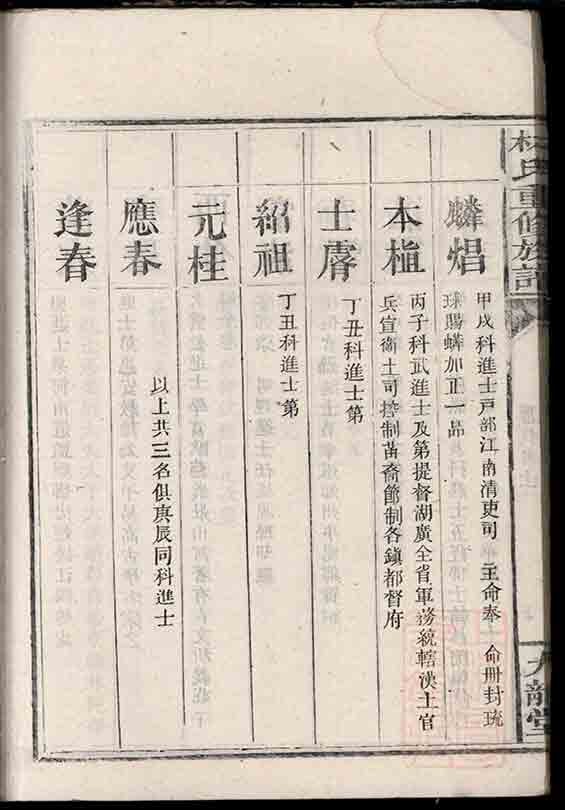 林氏重修族譜
九龍堂
麟焻
甲戌科進士戸部江南清吏司 主命奉 命冊封琉
球賜蟒加正一品
本植
丙子科武進士及第提督湖廣全省軍務統轄漢土官
兵宣衞土司控制苗裔節制各鎮都督府
士膺
丁丑科進士第
紹祖
丁丑科進士第
元桂
應春
以上共三名俱庚辰同科進士
逢春